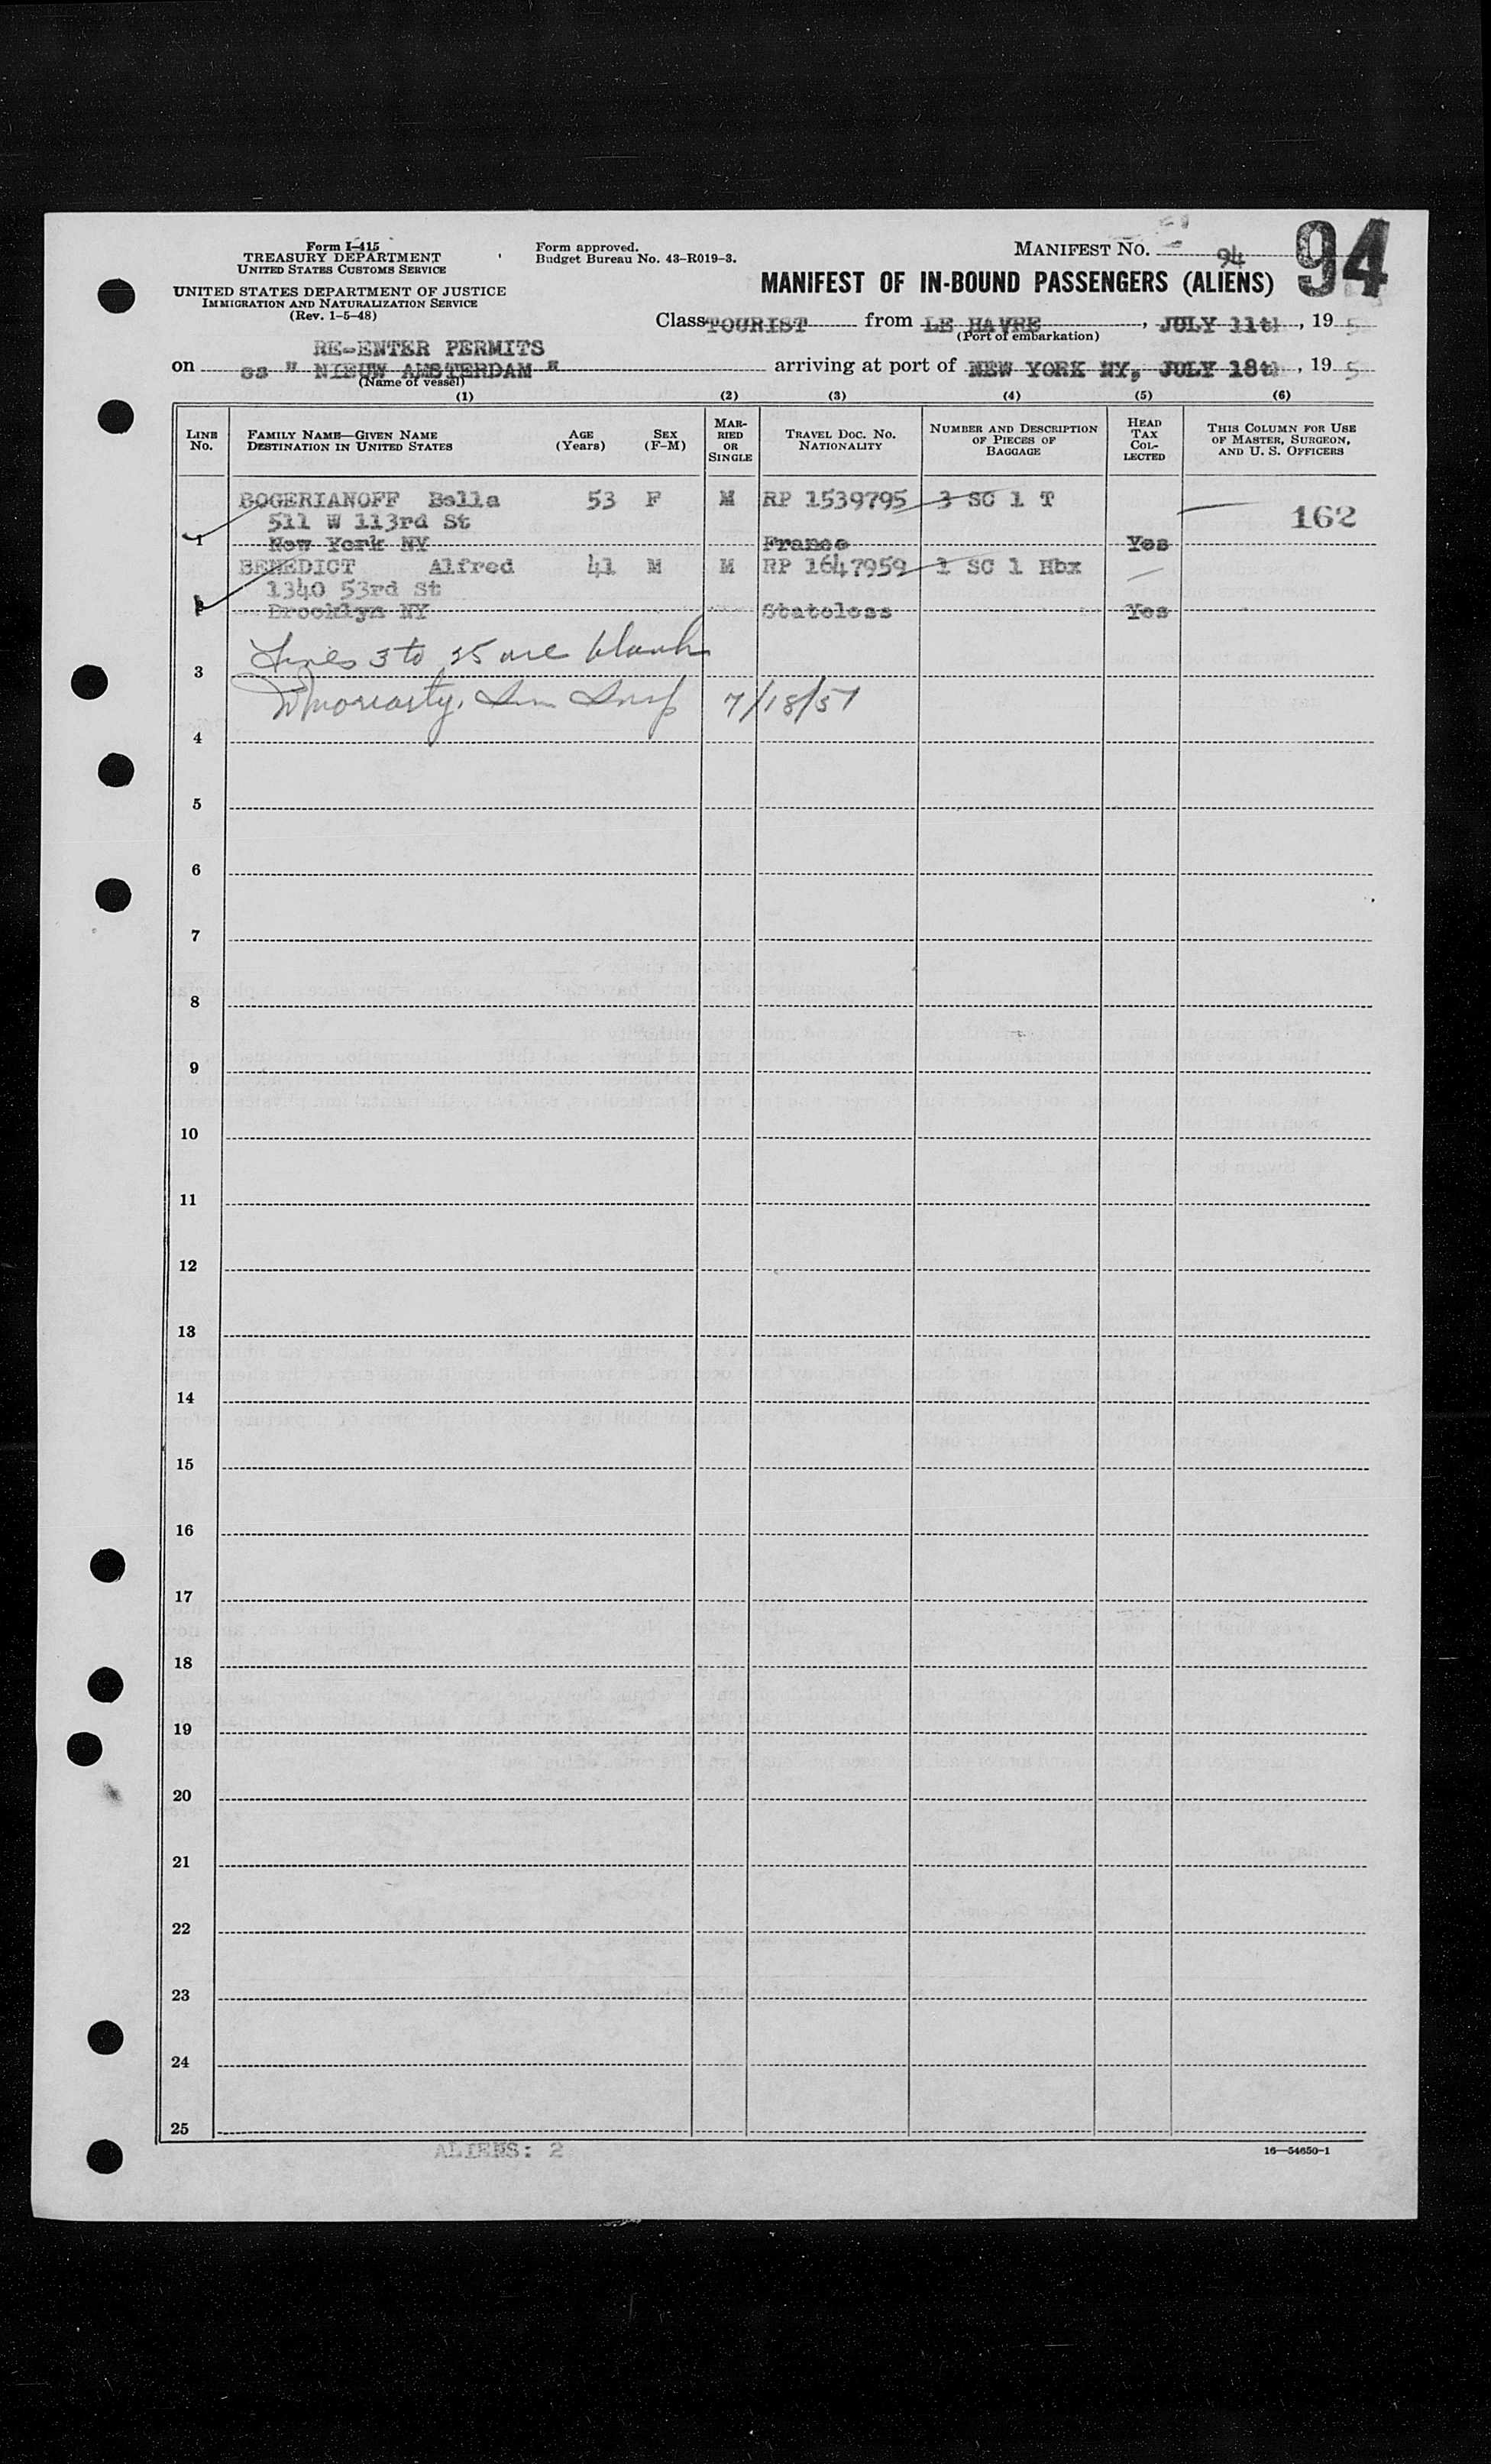 Form I-415
TREASURY DEPARTMENT
UNITED STATES CUSTOMS SERVICE
UNITED STATES DEPARTMENT OF JUSTICE
IMMIGRATION AND NATURALIZATION SERVICE
(Rev. 1-5-48)
Form approved.
Budget Bureau No. 43-R019-3.
MANIFEST NO. 94
94
MANIFEST OF IN-BOUND PASSENGERS (ALIENS)
Class TOURIST from LE HAVRE, JULY 11th, 195
(Port of embarkation)
RE-ENTER PERMITS
on ss " NIEUW AMSTERDAM " arriving at port of NEW YORK NY, JULY 18th, 195
(Name of vessel)
(1) (2) (3) (4) (5) (6)
LINE No. FAMILY NAME—GIVEN NAME DESTINATION IN UNITED STATES AGE (Years) SEX (F-M) MARRIED OR SINGLE TRAVEL DOC. NO. NATIONALITY NUMBER AND DESCRIPTION OF PIECES OF BAGGAGE HEAD TAX COLLECTED THIS COLUMN FOR USE OF MASTER, SURGEON, AND U. S. OFFICERS
BOGERIANOFF Bella 53 F M RP 1539795 3 SC 1 T
511 W 113rd St 162
1 New York NY France Yes
BENEDICT Alfred 41 M M RP 1647959 1 SC 1 Hbx
1340 53rd St
Brooklyn NY Stateless Yes
Lines 3 to 25 are blank
3
Moriarty, Imm Insp 7/18/51
4
5
6
7
8
9
10
11
12
13
14
15
16
17
18
19
20
21
22
23
24
25
ALIENS: 2
16—54650-1